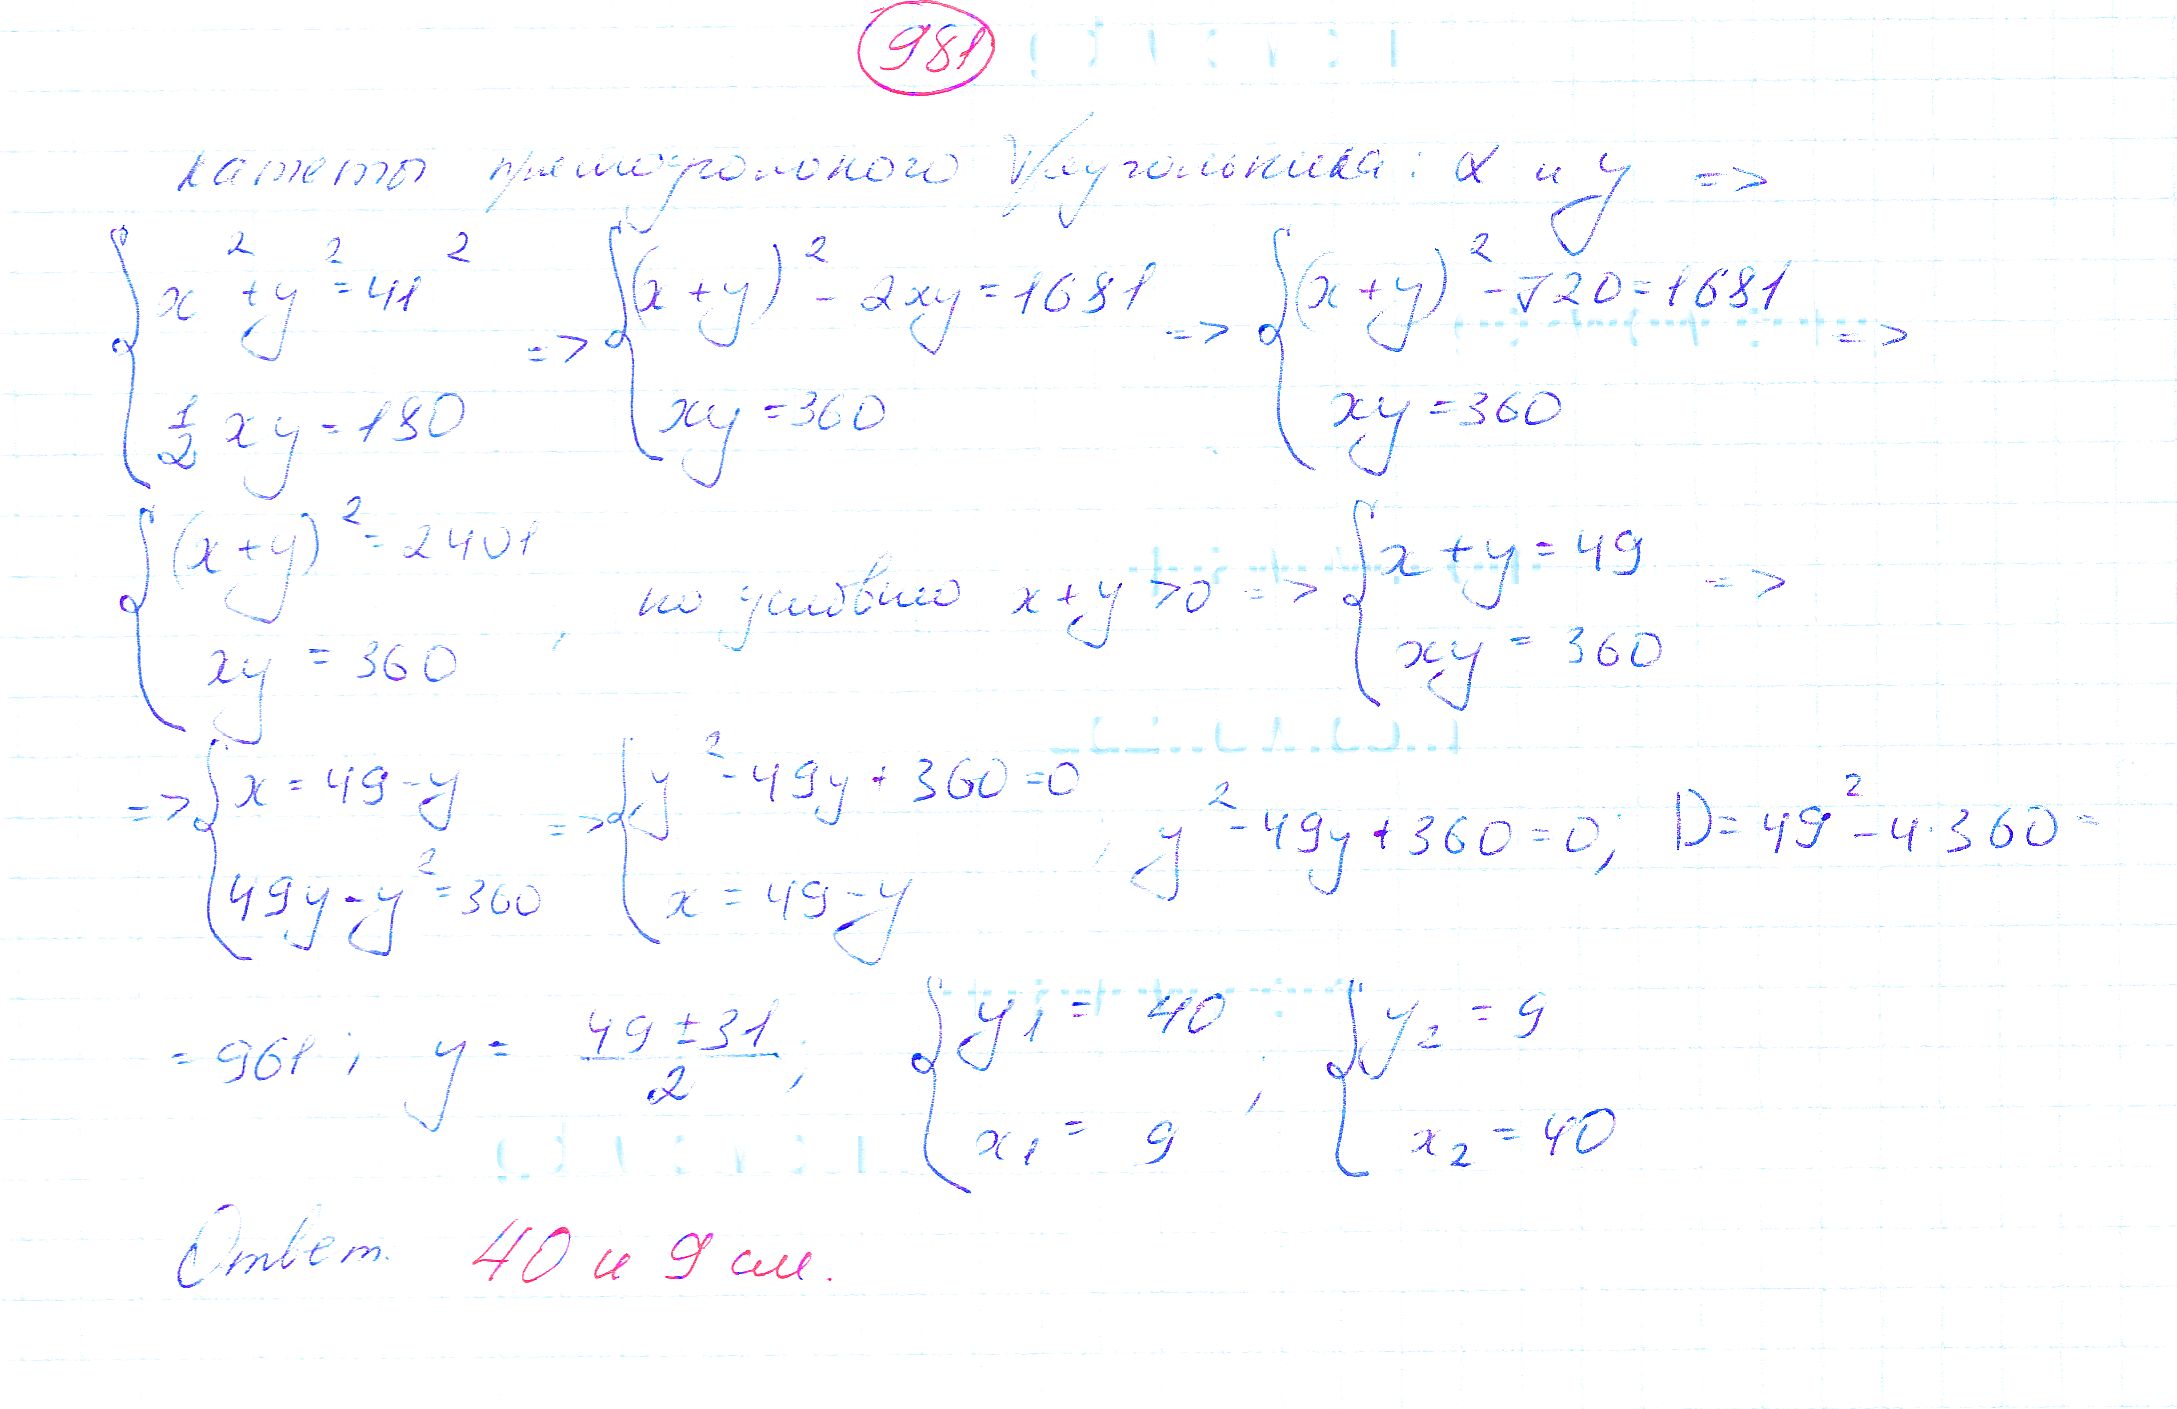 981
катеты прямоугольного треугольника: x и y =>
{ x² + y² = 41² ; ½ xy = 180 => { (x+y)² - 2xy = 1681 ; xy = 360 => { (x+y)² - 720 = 1681 ; xy = 360 =>
{ (x+y)² = 2401 ; xy = 360 , по условию x+y > 0 => { x+y = 49 ; xy = 360 =>
=> { x = 49 - y ; 49y - y² = 360 => { y² - 49y + 360 = 0 ; x = 49 - y ; y² - 49y + 360 = 0; D = 49² - 4·360 =
= 961; y = (49 ± 31)/2 ; { y₁ = 40 ; x₁ = 9 ; { y₂ = 9 ; x₂ = 40
Ответ. 40 и 9 см.